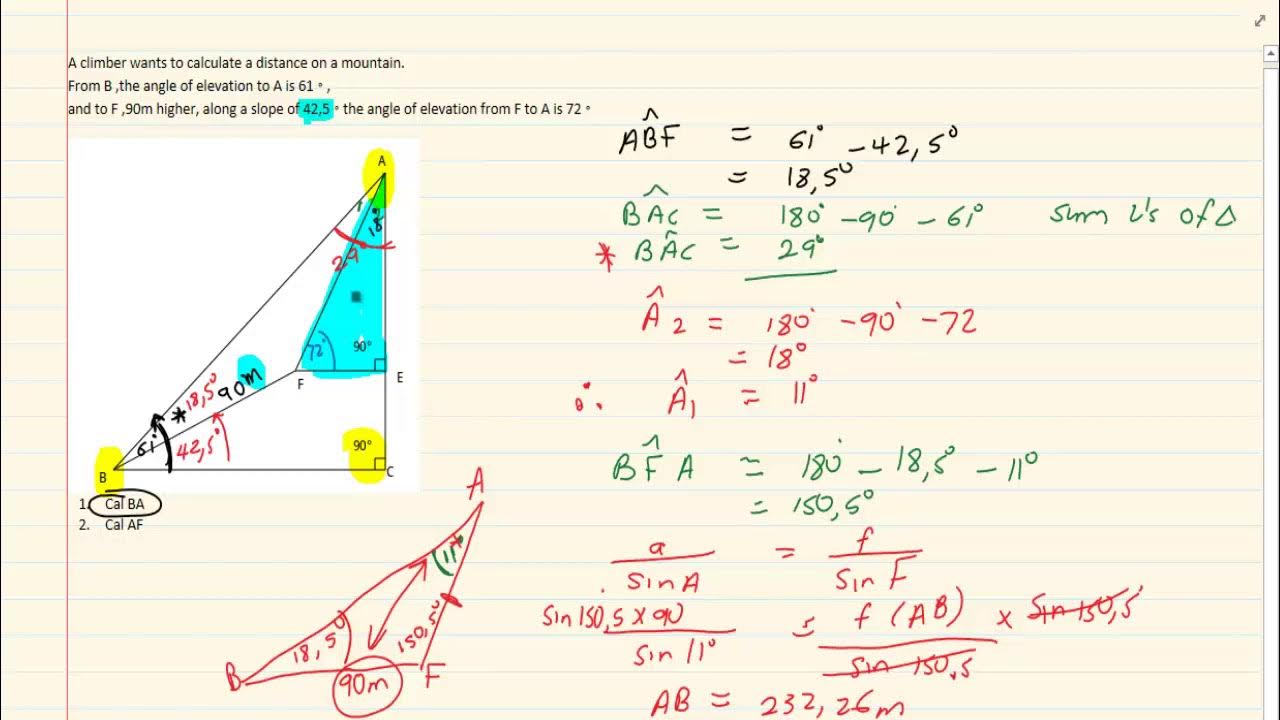 A climber wants to calculate a distance on a mountain.
From B ,the angle of elevation to A is 61 ° ,
and to F ,90m higher, along a slope of 42,5 ° the angle of elevation from F to A is 72 °
A
1
18°
29
72°
90°
F
E
*18,5° 90m
61°
42,5°
90°
B
C
1. Cal BA
2. Cal AF
AB̂F = 61° - 42,5°
= 18,5°
BÂC = 180° - 90° - 61° sum L's of Δ
* BÂC = 29°
Â2 = 180° - 90° - 72
= 18°
∴ Â1 = 11°
BF̂A = 180° - 18,5° - 11°
= 150,5°
a / sin A = f / sin F
sin 150,5 x 90 / sin 11° = f (AB) / sin 150,5 x sin 150,5
AB = 232,26m
A
11°
18,5°
150,5°
B
90m
F